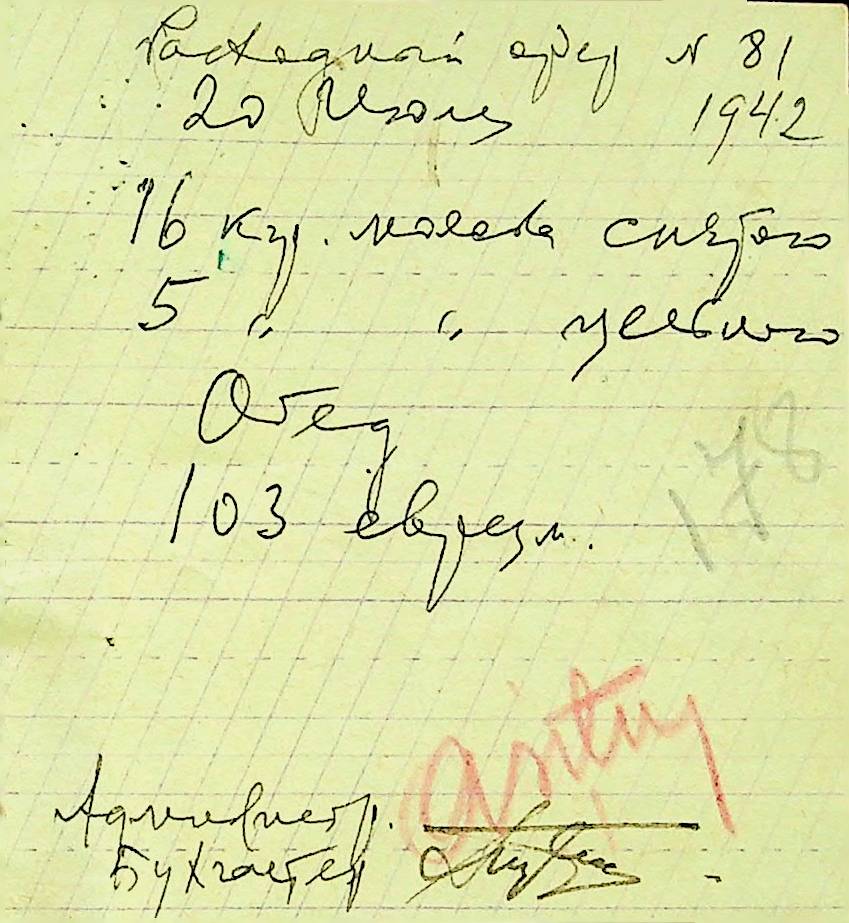 Расходный ордер № 81
20 Июля 1942
16 кгр. молока снятого
5 " " цельного
Обед
103 евреям.
178
Администр.
Бухгалтер